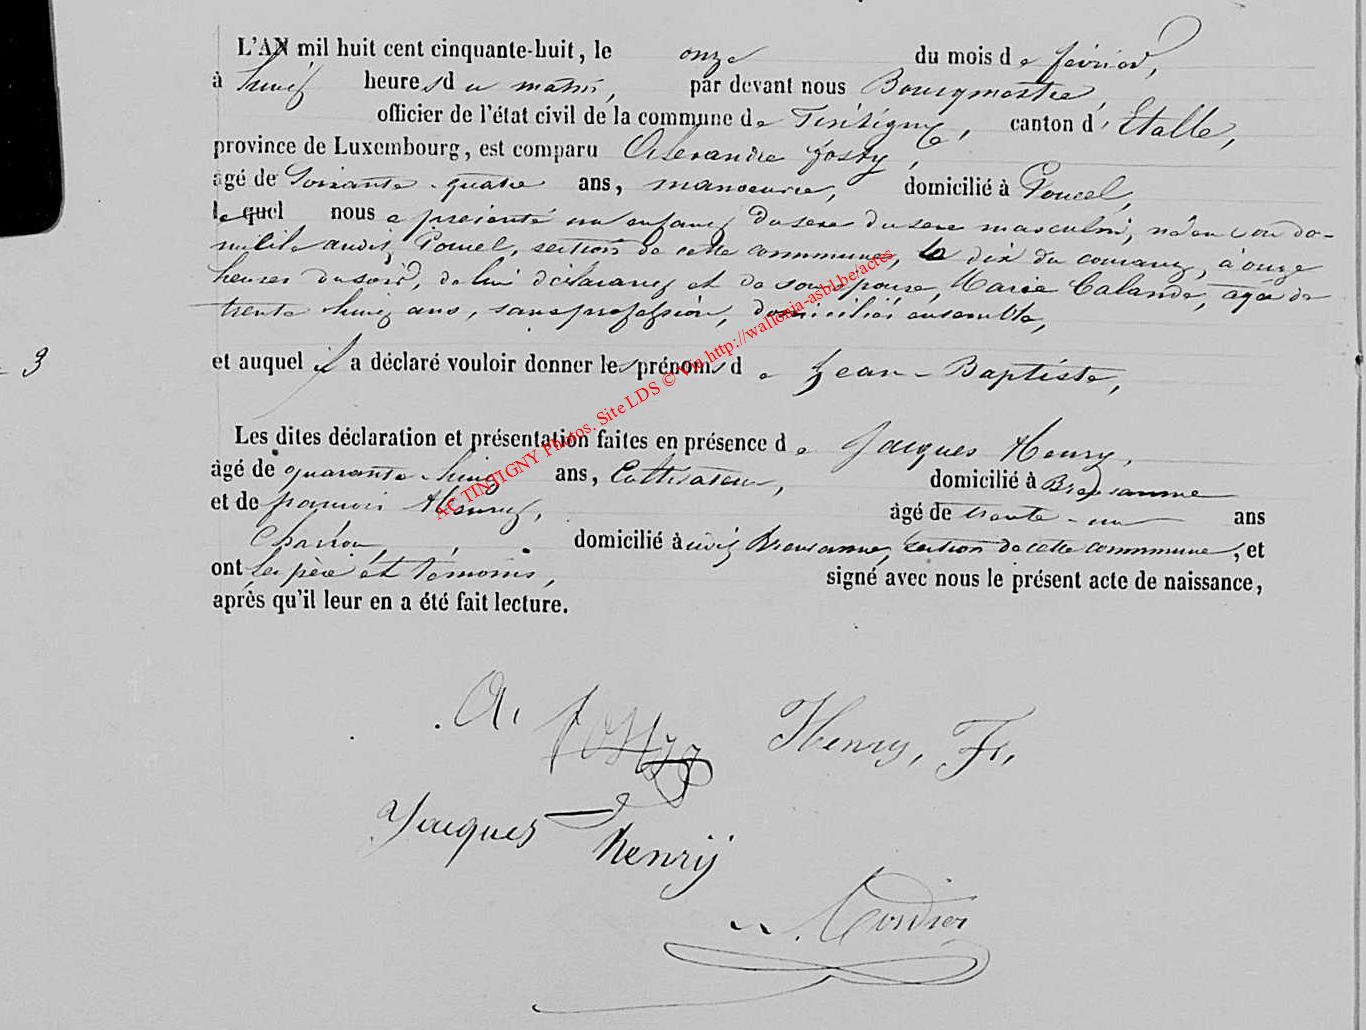 L'AN mil huit cent cinquante-huit, le onze du mois de février,
à huit heures du matin, par devant nous Bourgmestre,
officier de l'état civil de la commune de Tintigny, canton d'Etalle,
province de Luxembourg, est comparu Alexandre Josty,
âgé de Soixante-quatre ans, manoeuvre, domicilié à Poncel,
lequel nous a présenté un enfant du sexe du sexe masculin, né en son do-
micile audit Poncel, section de cette commune, le dix du courant, à onze
heures du soir, de lui déclarant et de son épouse, Marie Calande, agée de
trente huit ans, sans profession, domiciliés ensemble,
- 3
et auquel il a déclaré vouloir donner les prénoms de Jean-Baptiste,
Les dites déclaration et présentation faites en présence de Jacques Henry,
âgé de quarante-huit ans, Cultivateur, domicilié à
et de françois Henry, âgé de trente-un ans
Charron, domicilié audit section de cette commune, et
ont les père et témoins, signé avec nous le présent acte de naissance,
après qu'il leur en a été fait lecture.
AC TINTIGNY Photos. Site LDS © via http://wallonia-asbl.be/actes
A. Josty Henry, Fs,
Jacques henrÿ